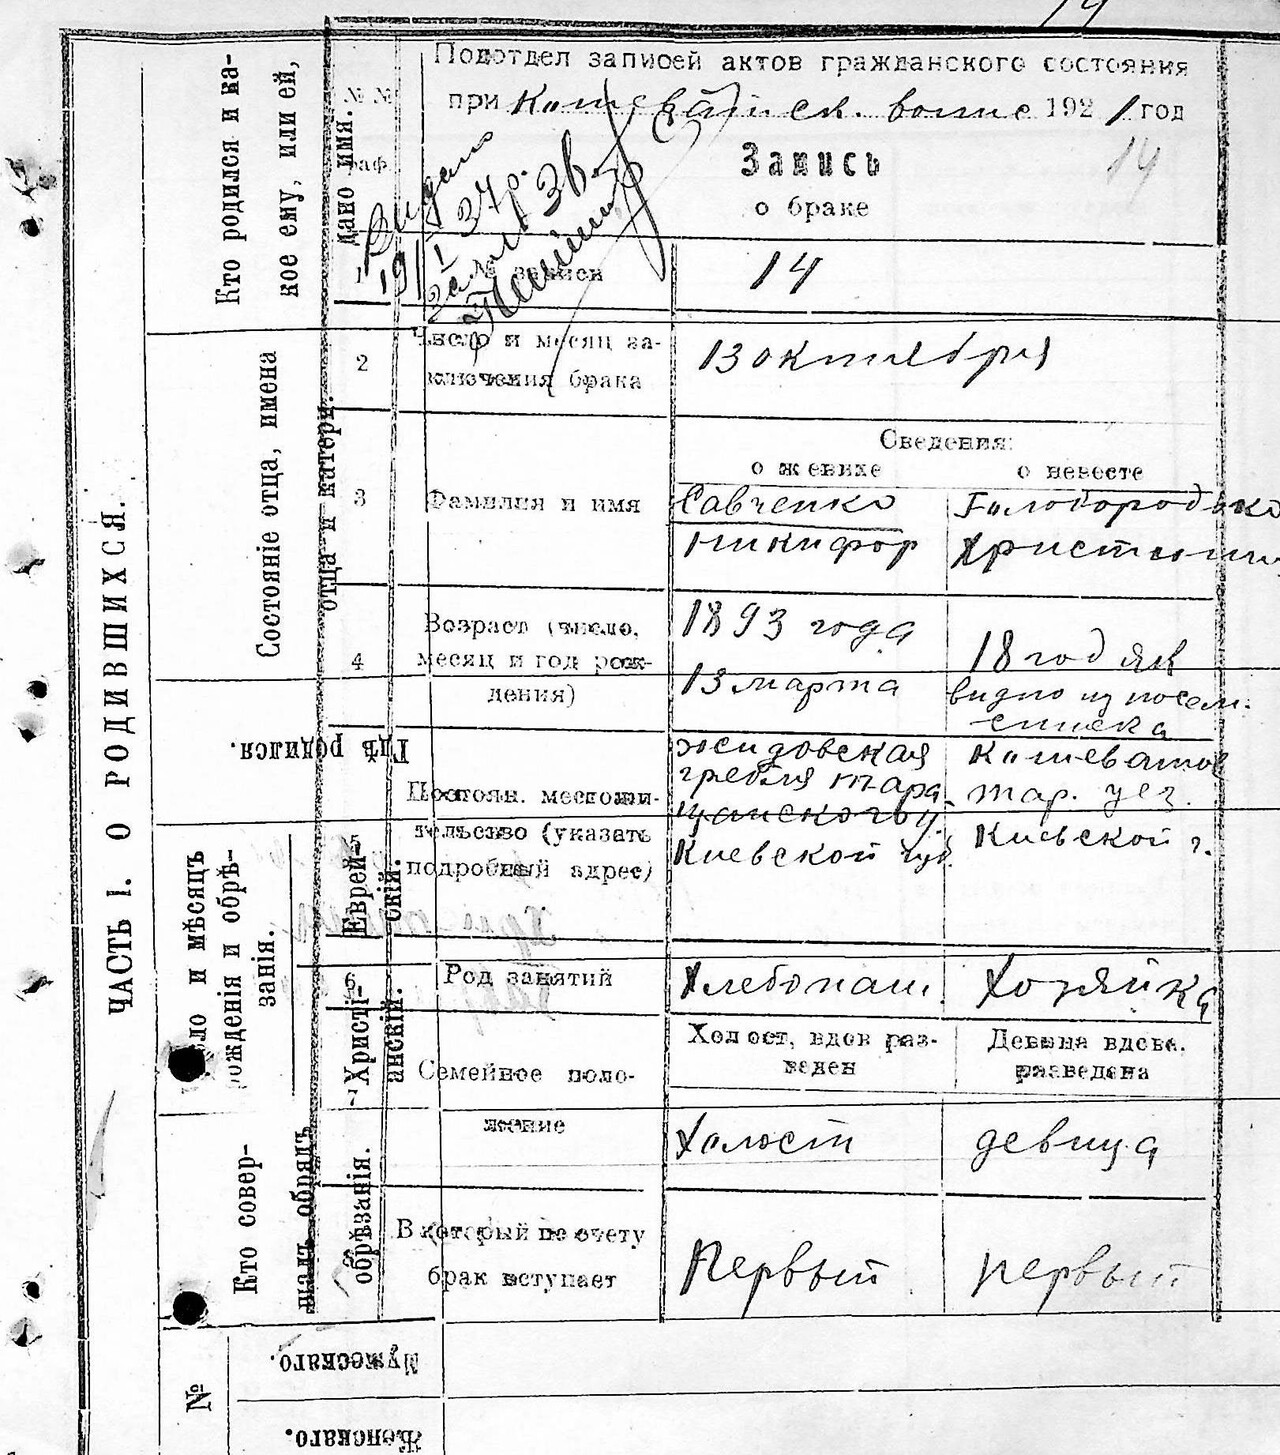 14
Подотдел записей актов гражданского состояния
при 1921 год
14
Запись
о браке
№№
граф.
Выдано
19 1/I 37 р.
Зв.
1 № записи 14
2 Число и месяц за-
ключения брака
13 октября
Сведения:
о женихе о невесте
3 Фамилия и имя
Савченко
Никифор
Голобородько
Христина
4 Возраст (число,
месяц и год рож-
дения)
1893 года
13 марта
18 год як
видно из посем.
списка
5 Постоян. местожи-
тельство (указать
подробный адрес)
жидовская
гребля тара
щанского у.
Киевской губ.
Кошеватое
тар. уез.
Киевской г.
6 Род занятий
Хлебопаш.
Хозяйка
7 Семейное поло-
жение
Холост, вдов раз-
веден
Девица вдова.
разведена
Холост
девица
В который по счету
брак вступает
Первый
первый
ЧАСТЬ I. О РОДИВШИХСЯ.
Кто родился и ка-
кое ему, или ей,
дано имя.
Состояніе отца, имена
отца и матери.
Гдѣ родился.
Число и мѣсяцъ
рожденія и обрѣ-
занія.
Еврей-
скій.
Христі-
анскій.
Кто совер-
шалъ обрядъ
обрѣзанія.
№
Мужескаго.
Женскаго.